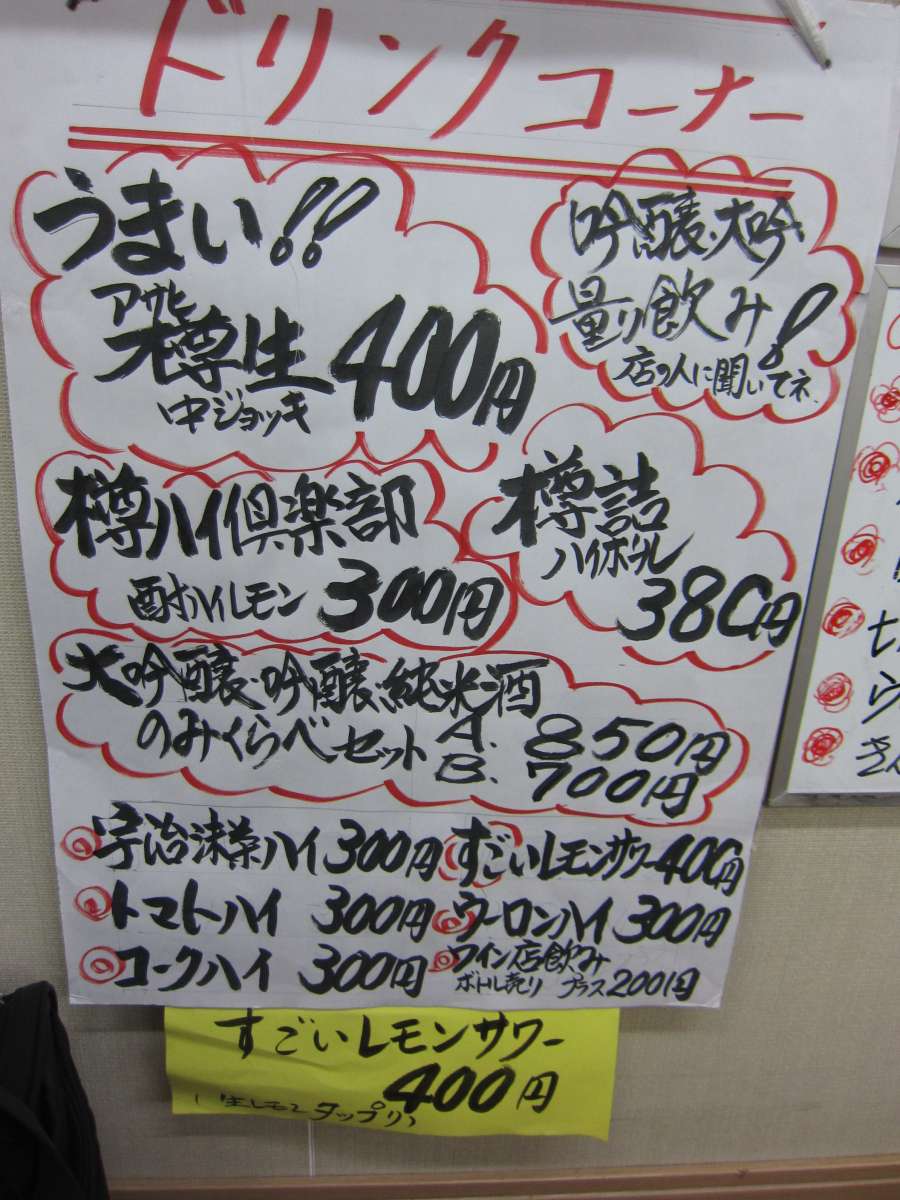 ドリンクコーナー
うまい!!
アサヒ
樽生 400円
中ジョッキ
吟醸・大吟
量り飲み!
店の人に聞いてネ.
樽ハイ倶楽部
酎ハイレモン 300円
樽詰
ハイボール
380円
大吟醸・吟醸・純米酒
のみくらべセット A. 850円
B. 700円
宇治抹茶ハイ 300円
すごいレモンサワー 400円
トマトハイ 300円
ウーロンハイ 300円
コークハイ 300円
ワイン店飲み
ボトル売り プラス200円
すごいレモンサワー
400円
(生レモンタップリ)